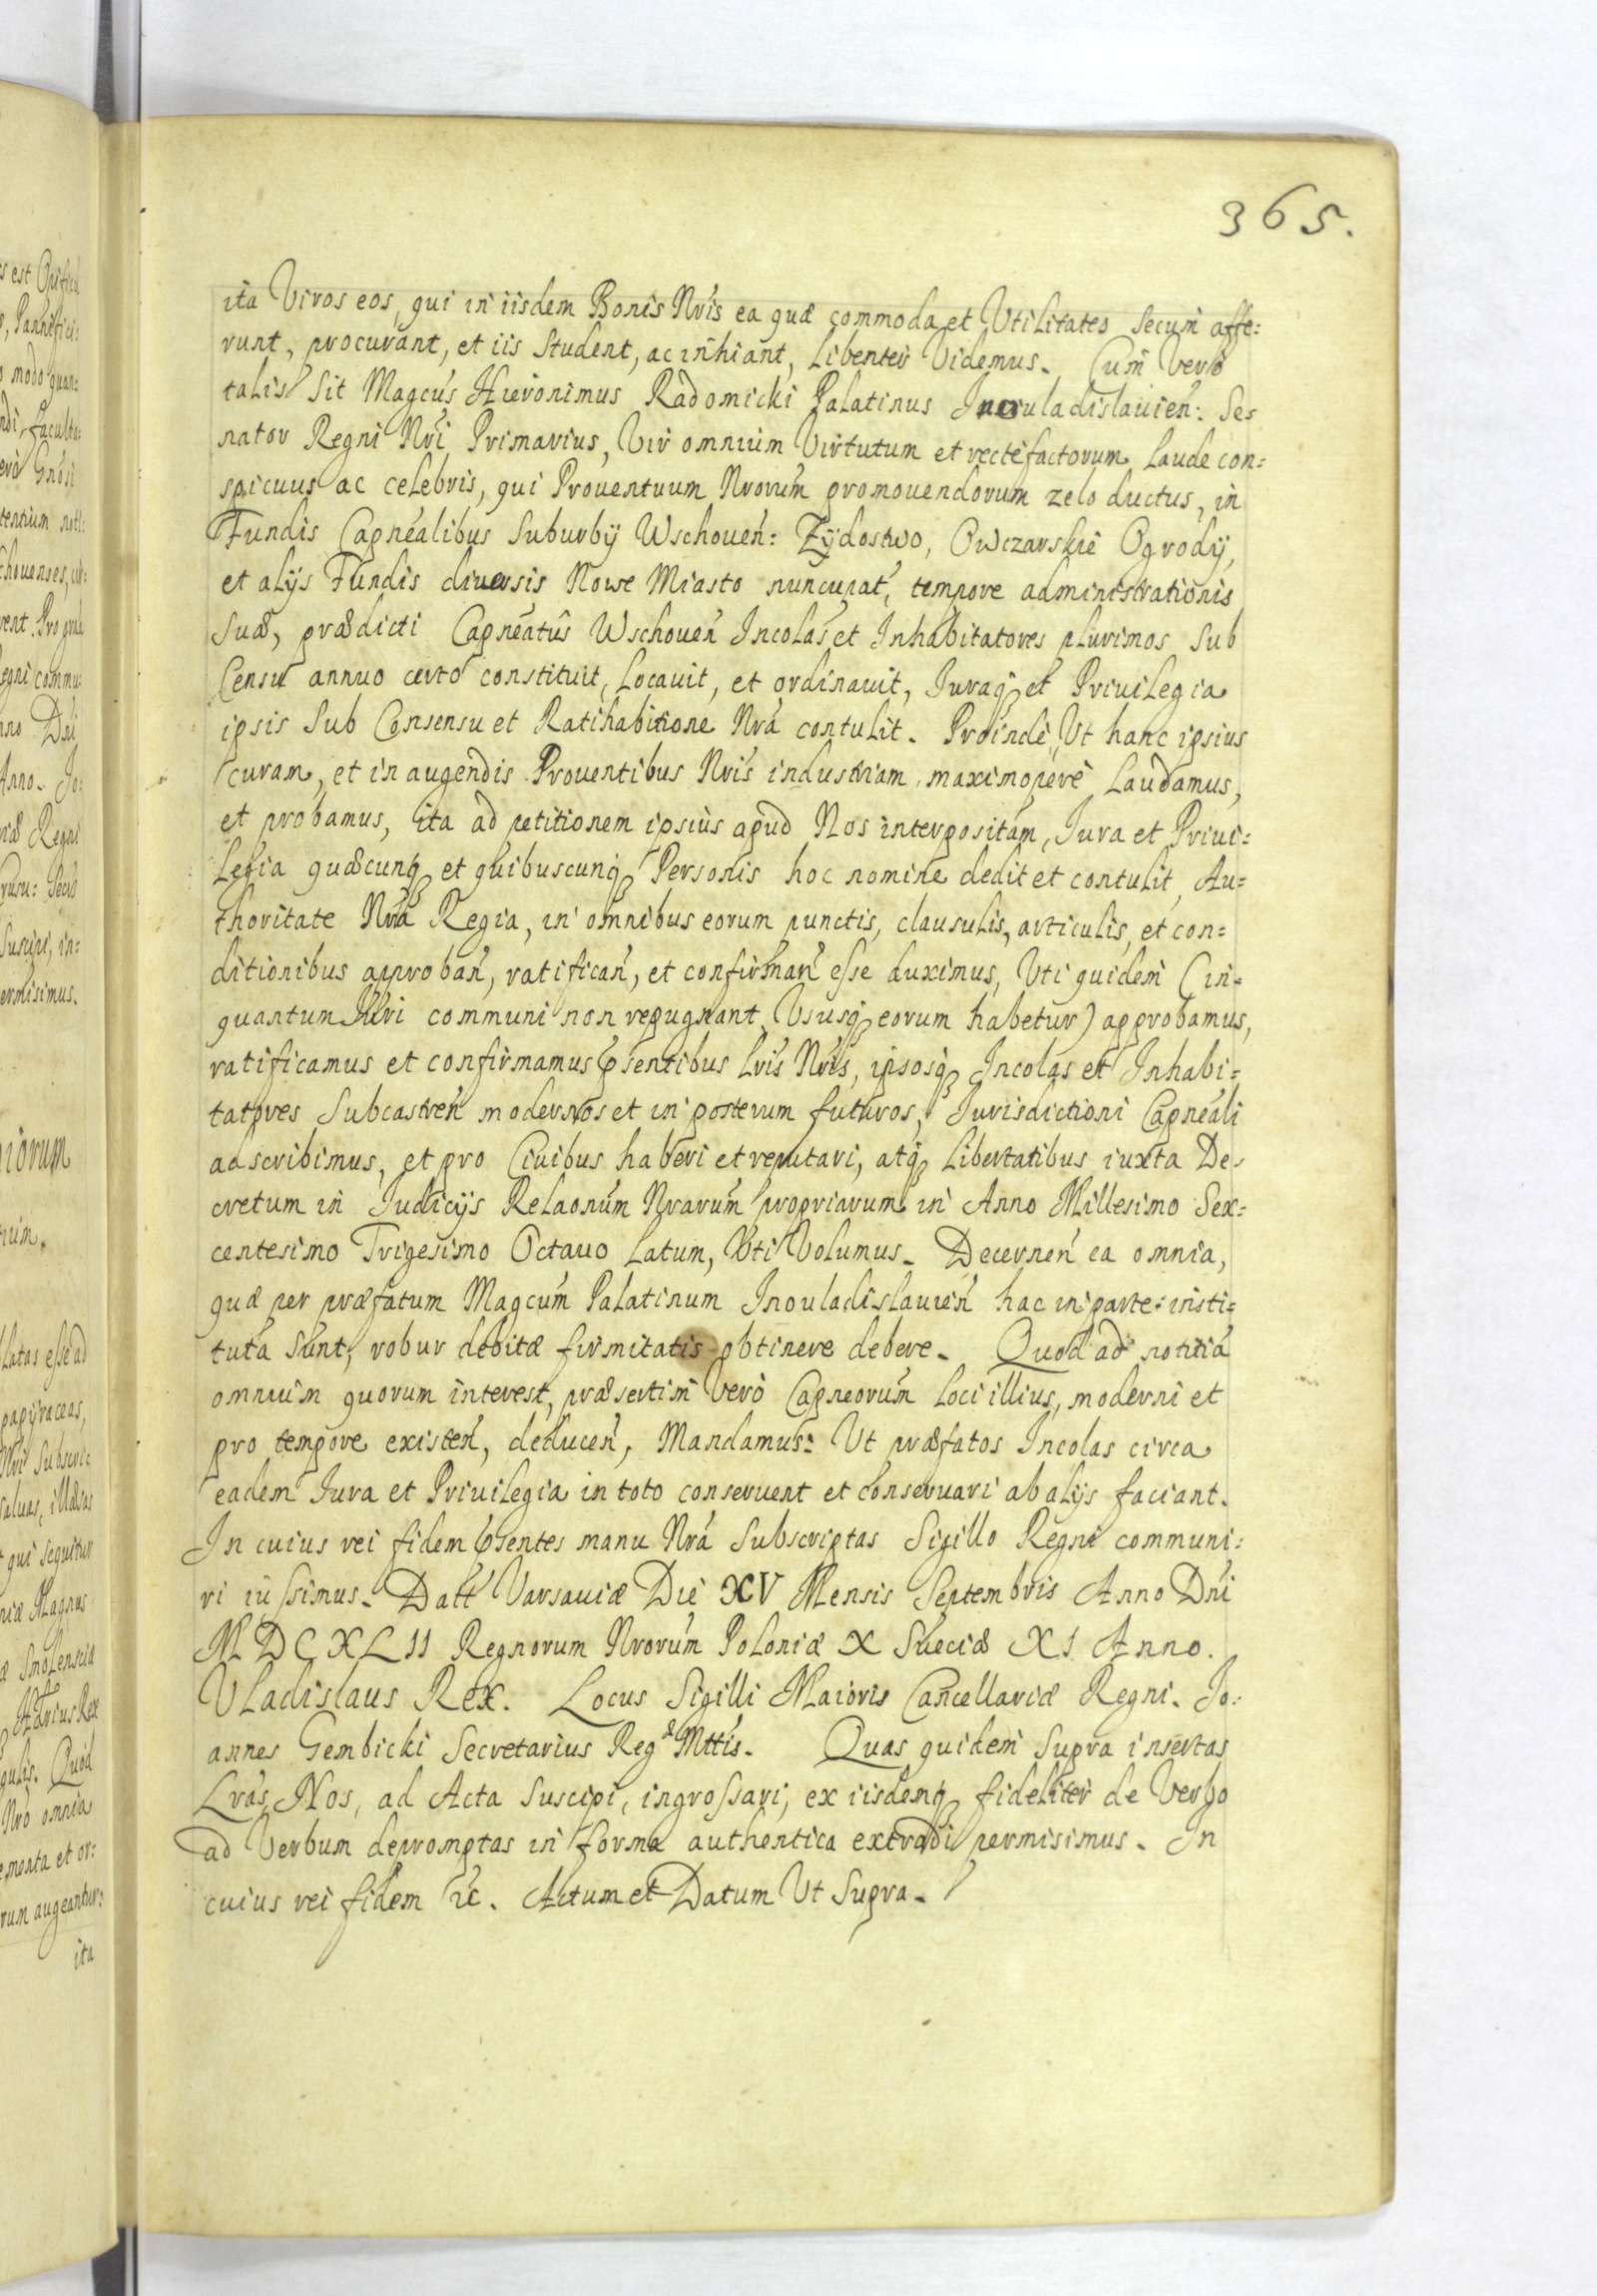 365.
ita Viros eos, qui in iisdem Bonis Nris ea quæ commoda et Vtilitates secum affe:
runt, procurant, et iis student, ac inhiant, libenter Videmus. Cum Verò
talis sit Magcus Hieronimus Radomicki Palatinus Inouladislauien: Se:
nator Regni Nri Primarius, Vir omnium Virtutum et rectefactorum laude con:
spicuus ac celebris, qui Prouentuum Nrorum promouendorum zelo ductus, in
Fundis Capnealibus Suburbij Wschouen: Zydostwo, Owczarskie Ogrody,
et alijs Fundis diuersis Nowe Miasto nuncupat, tempore administrationis
suæ, prædicti Capneatûs Wschouen Incolas et Inhabitatores plurimos sub
Censu annuo certo constituit, locauit, et ordinauit, Iuraq et Priuilegia
ipsis sub Consensu et Ratihabitione Nrâ contulit. Proinde, Vt hanc ipsius
curam, et in augendis Prouentibus Nris industriam maximoperè laudamus,
et probamus, ita ad petitionem ipsius apud Nos interpositam, Iura et Priui:
legia quæcunq et quibuscunq Personis hoc nomine dedit et contulit, Au:
thoritate Nrâ Regia, in omnibus eorum punctis, clausulis, articulis, et con:
ditionibus approban, ratifican, et confirman esse duximus, Vti quidem (in:
quantum Iuri communi non repugnant Vsusq eorum habetur) approbamus,
ratificamus et confirmamus psentibus Lris Nris, ipsosq Incolas et Inhabi:
tatores Subcastren modernos et in posterum futuros, Iurisdictioni Capneali
adscribimus, et pro Ciuibus haberi et reputari, atq Libertatibus iuxta De:
cretum in Judicijs Relaonum Nrarum propriarum in Anno Millesimo Sex:
centesimo Trigesimo Octauo latum, Vti Volumus. Decernen ea omnia,
quæ per præfatum Magcum Palatinum Inouladislauien hac in parte insti:
tuta sunt, robur debitæ firmitatis obtinere debere. Quod ad notitiâ
omnium quorum interest, præsertim Verò Capneorum loci illius, moderni et
pro tempore existen, deducen, Mandamus: Vt præfatos Incolas circa
eadem Iura et Priuilegia in toto conseruent et conseruari ab alijs faciant.
In cuius rei fidem psentes manu Nrâ subscriptas Sigillo Regni communi:
ri iussimus. Datt Varsauiæ Die XV Mensis Septembris Anno Dni
MDCXLII Regnorum Nrorum Poloniæ X Sueciæ XI Anno.
Vladislaus Rex. Locus Sigilli Maioris Cancellariæ Regni. Jo:
annes Gembicki Secretarius Regæ Mttis. Quas quidem supra insertas
Lras, Nos, ad Acta suscipi, ingrossari, ex iisdemq fideliter de Verbo
ad Verbum depromptas in forma authentica extradi permisimus. In
cuius rei fidem &c. Actum et Datum Vt Supra.